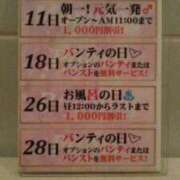 11日
朝一!元気一発♂
オープン～AM11:00まで
1,000円割引
18日
パンティの日
オプションのパンティまたは
パンスト無料サービス!
26日
お風呂の日
昼12:00からラストまで
1,000円割引
28日
パンティの日
オプションのパンティまたは
パンストを無料サービス!